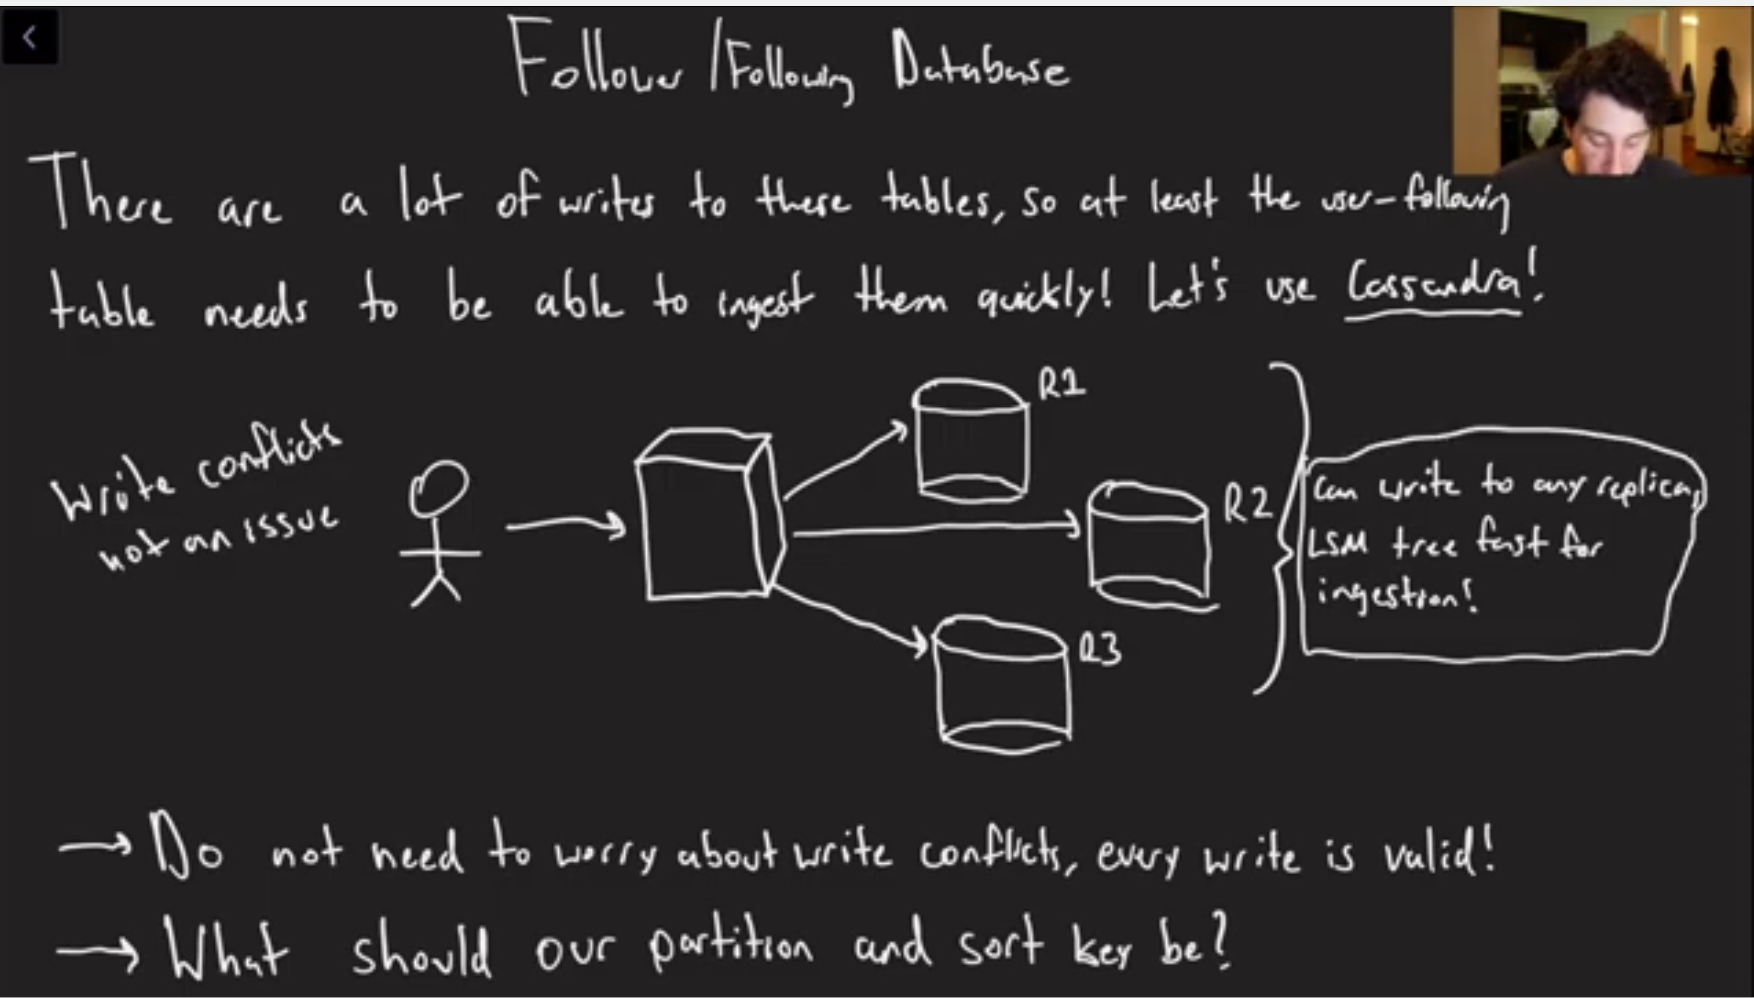 Follower/Following Database
There are a lot of writes to these tables, so at least the user-following
table needs to be able to ingest them quickly! Let's use Cassandra!
Write conflicts
not an issue
R1
R2
R3
Can write to any replica,
LSM tree fast for
ingestion!
→ Do not need to worry about write conflicts, every write is valid!
→ What should our partition and sort key be?